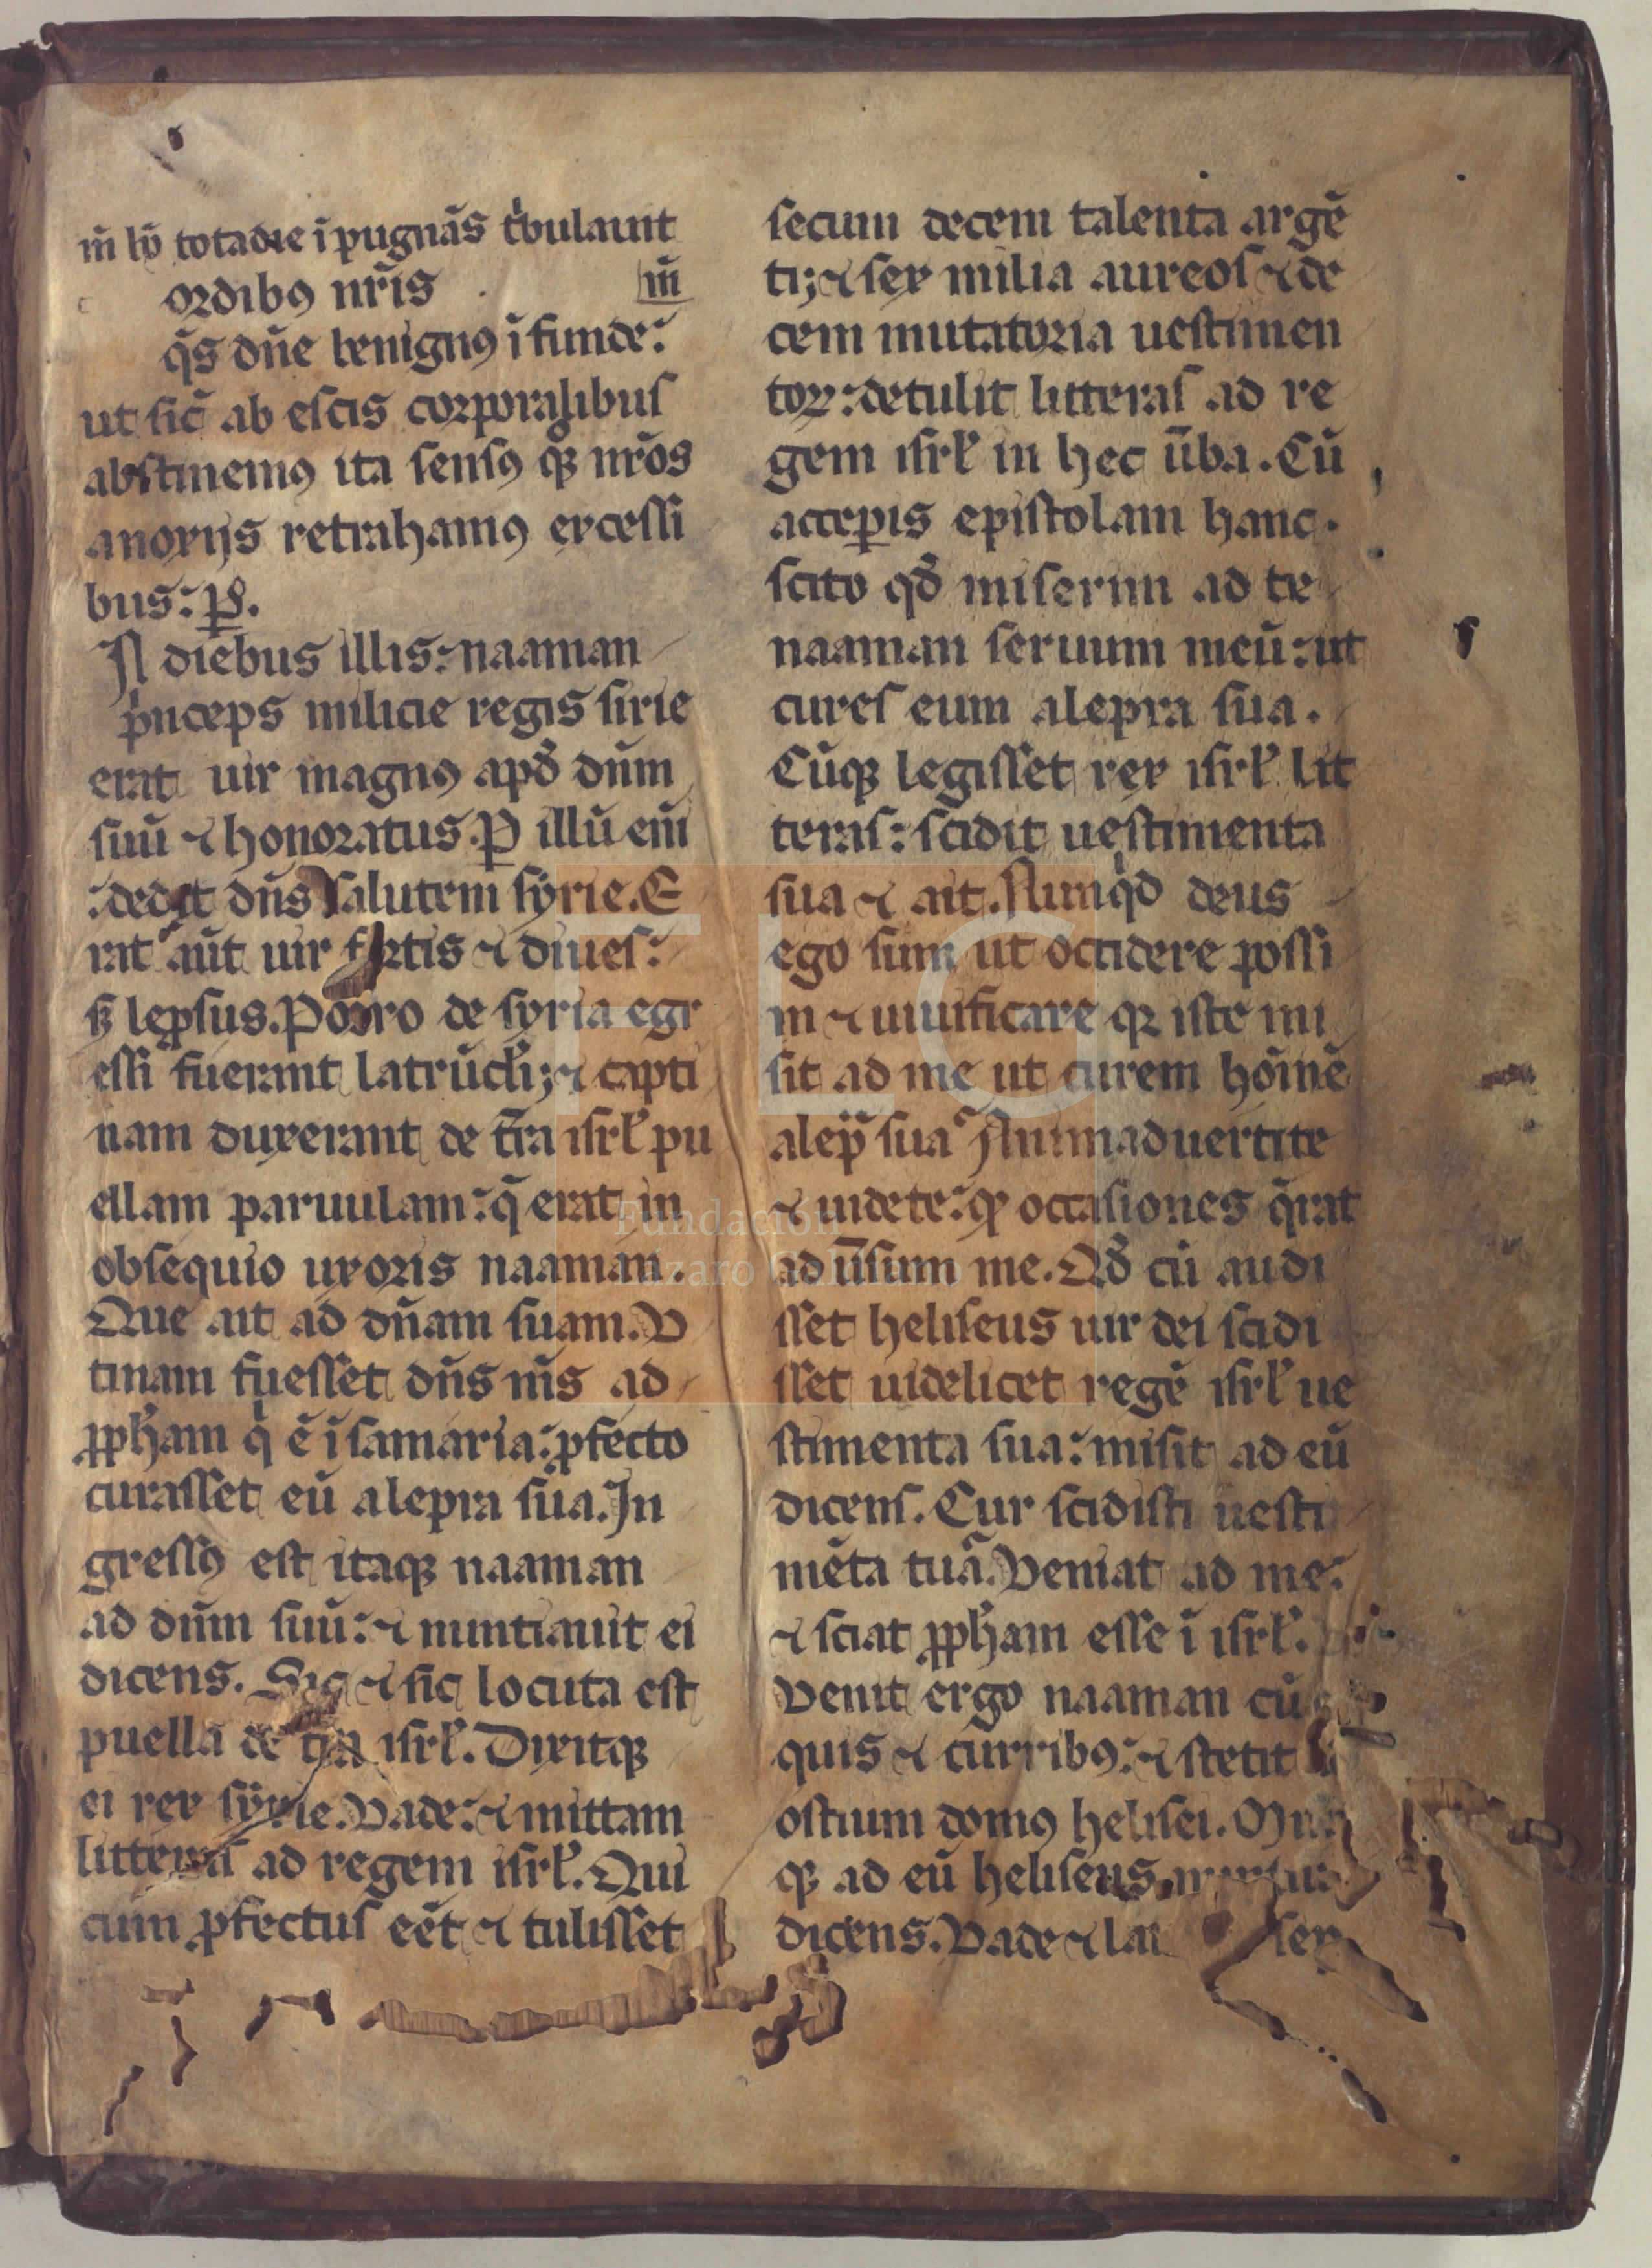 m̃ hō totadie ĩpugnãs t̾bulauit
ordibꝰ nr̃is m̃
q̃s dñe benignꝰ ĩfunde:
ut sic̃ ab escis corporalibus
abstinemꝰ ita sensꝰ qꝫ nr̃os
anoxijs retrahamꝰ excessi
bus: ꝑ.
IN diebus illis: naaman
p̾nceps milicie regis sirie
erat uir magnus apđ dñm
suũ ⁊ honoratus. ꝑ illũ em̃
dedit dñs salutem syrie. E
rat aũt uir fortis ⁊ diues:
sꝫ leprsus. Porro de syria egr
essi fuerant latrũcl̃i; ⁊ capti
uam duxerant de tr̃a isrl̃ pu
ellam paruulam: q̃ erat in
obsequio uxoris naaman.
Que ait ad dñam suam. V
tinam fuesset dñs m̃s ad
ꝓpħam q̾ ẽ ĩ samaria: ꝓfecto
curasset eũ alepra sua. In
gressꝰ est itaqꝫ naaman
ad dñm suũ: ⁊ nuntiauit ei
dicens. Sic ⁊ sic locuta est
puella de isrl̃. Dixitqꝫ
ei rex syrie. Vade: ⁊ mittam
litteras ad regem isrl̃. Qui
cum ꝓfectus eẽt ⁊ tulisset
secum decem talenta argẽ
ti; ⁊ sex milia aureos ⁊ de
cem mutatoria uestimen
toꝝ: detulit litteras ad re
gem isrl̃ in hec ũba. Cũ
acceꝑis epistolam hanc.
scito qđ miserim ad te
naaman seruum meũ: ut
cures eum alepra sua.
Cũqꝫ legisset rex isrl̃ lit
teras: scidit uestimenta
sua ⁊ ait. Nunq̾d deus
ego sum ut occidere possi
m ⁊ uiuificare qꝫ iste mi
sit ad me ut curem hoĩnẽ
alep̃ sua Animaduertite
⁊ uidete: qꝫ occasiones q̃rat
ad ũsum me. Qđ cũ audi
sset heliseus uir dei scidi
sset uidelicet regẽ isrl̃ ue
stimenta sua: misit ad eũ
dicens. Cur scidisti uesti
mẽta tua. Veniat ad me:
⁊ sciat ꝓpħam esse ĩ isrl̃.
Venit ergo naaman cũ
quis ⁊ curribꝰ: ⁊ stetit
ostium domꝰ helisei.
qꝫ ad eũ heliseus
dicens. Vade ⁊
FLG
Fundación
Lázaro Galdiano